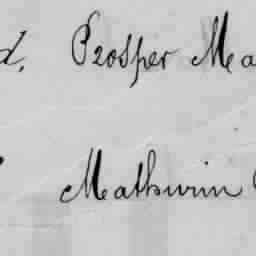 d, Prosper Ma
Mathurin